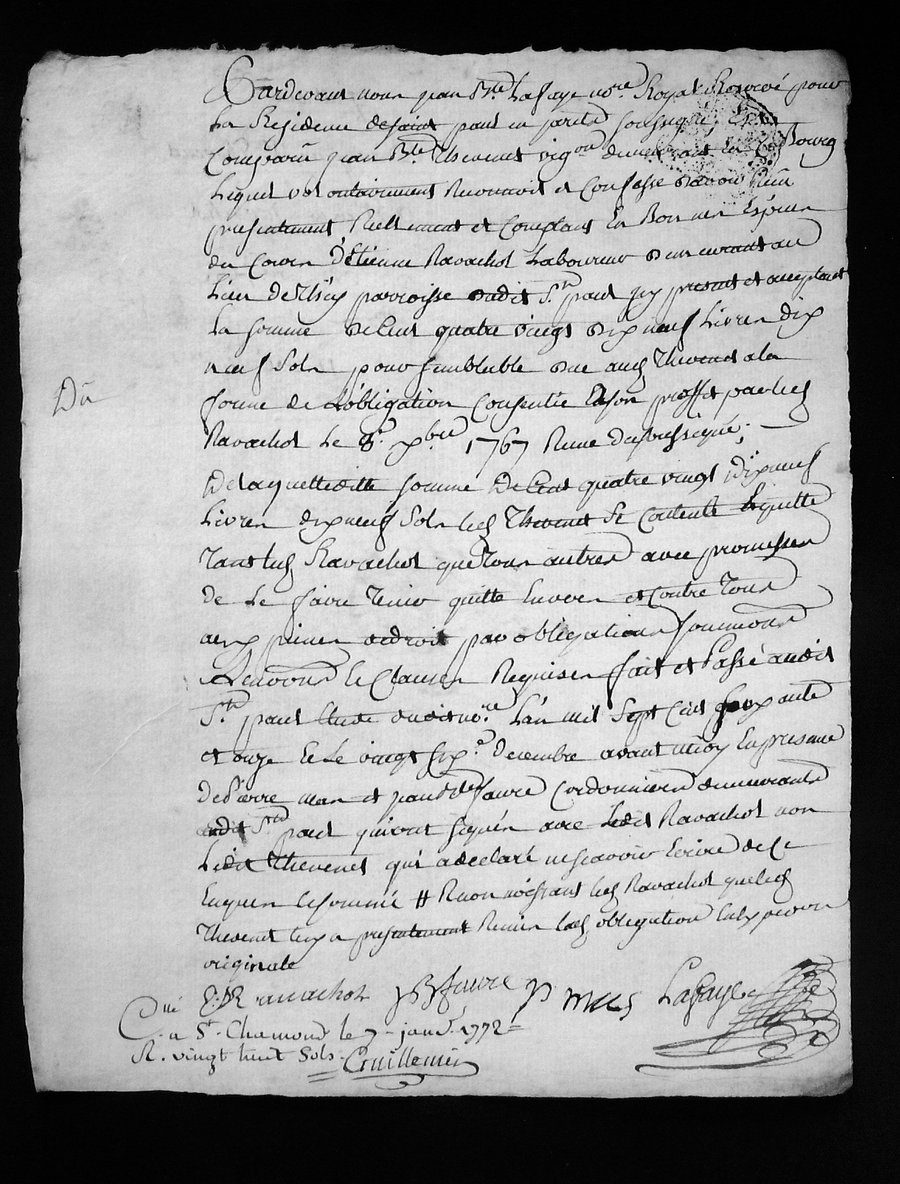 Pardevant nous jean Bte Lafaye nore Royal Reservé pour
La Residence de saint paul en jarêts soussigné, Est
Comparu jean Bte Thevenet vigon demeurant En Ce Bourg
Lequel volontairement Reconnoit et Confesse avoir Reçu
presentement Reellement et Comptant En Bonnes Espèces
du Cours D'Etienne Ravachol Laboureur demeurant au
Lieu de parroisse dudit St paul icy present et acceptant
La somme de Cent quatre vingt dix neuf Livres dix
neuf Sols pour semblable due aud Thevenet a la
forme de L'obligation Consentie En son proffit par led
Ravachol Le 8e xbre 1767 Reçue du soussigné;
De laquelle ditte somme De Cent quatre vingt dix neuf
Livres dix neuf Sols led Thevenet Se Contente Et quitte
Tant led Ravachol que tous autres avec promesses
de Le faire Tenir quitte Envers et Contre Tous
aux peines de droit par obligations soumissions
Renvons Et Clauses Requises fait et Passé audit
St paul Etude dudit nore L'an mil Sept Cent soixante
et onze Et Le vingt six Decembre avant midy En presence
de Pierre et jean Bte faure Cordonniers demeurants
audit St paul qui ont signés avec Ledit Ravachol non
Ledit Thevenet qui a declaré ne scavoir Ecrire de Ce
Enquis Et sommé # led Ravachol que led
Thevenet luy a presentement Remis lad obligation
originale
E. Ravachol JB faure P Lafaye
Cué
a St. Chamond le 7 janv. 1772
R. vingt huit Sols.
Guillemin